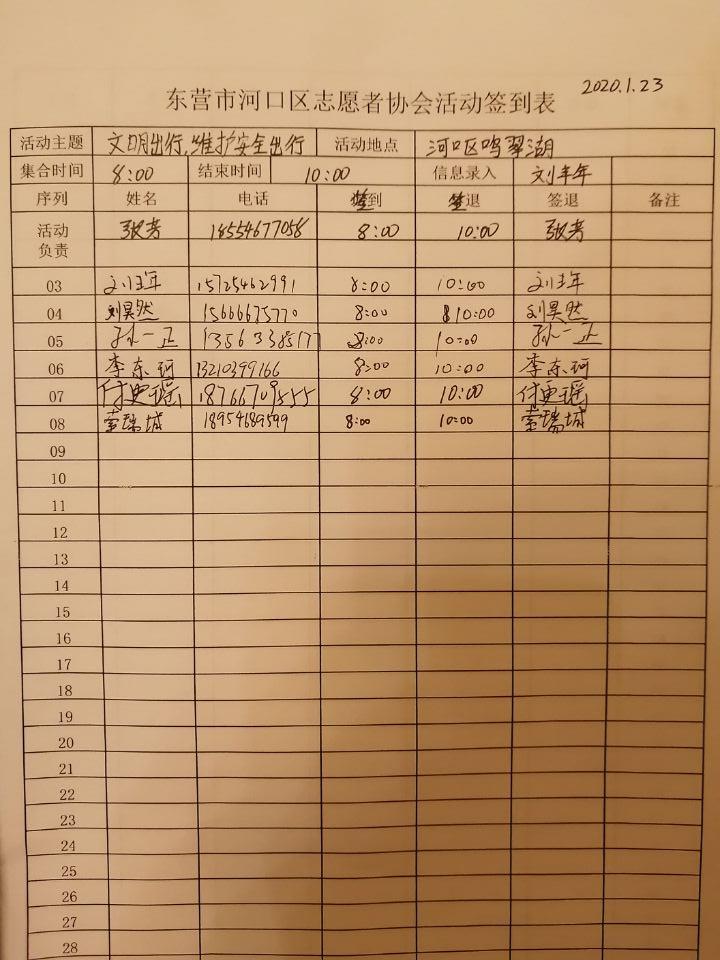 2020.1.23
东营市河口区志愿者协会活动签到表
活动主题 文明出行,维护安全出行 活动地点 河口区鸣翠湖
集合时间 8:00 结束时间 10:00 信息录入 刘丰年
序列 姓名 电话 签到 签退 签退 备注
活动负责 张芳 18554677058 8:00 10:00 张芳
03 15725462991 8:00 10:00
04 刘昊然 15666675770 8:00 10:00 刘昊然
05 孙一正 13563385177 8:00 10:00 孙一正
06 李东珂 13210399166 8:00 10:00 李东珂
07 付更瑶 18766709855 8:00 10:00 付更瑶
08 瑞城 18954689599 8:00 10:00 瑞城
09
10
11
12
13
14
15
16
17
18
19
20
21
22
23
24
25
26
27
28